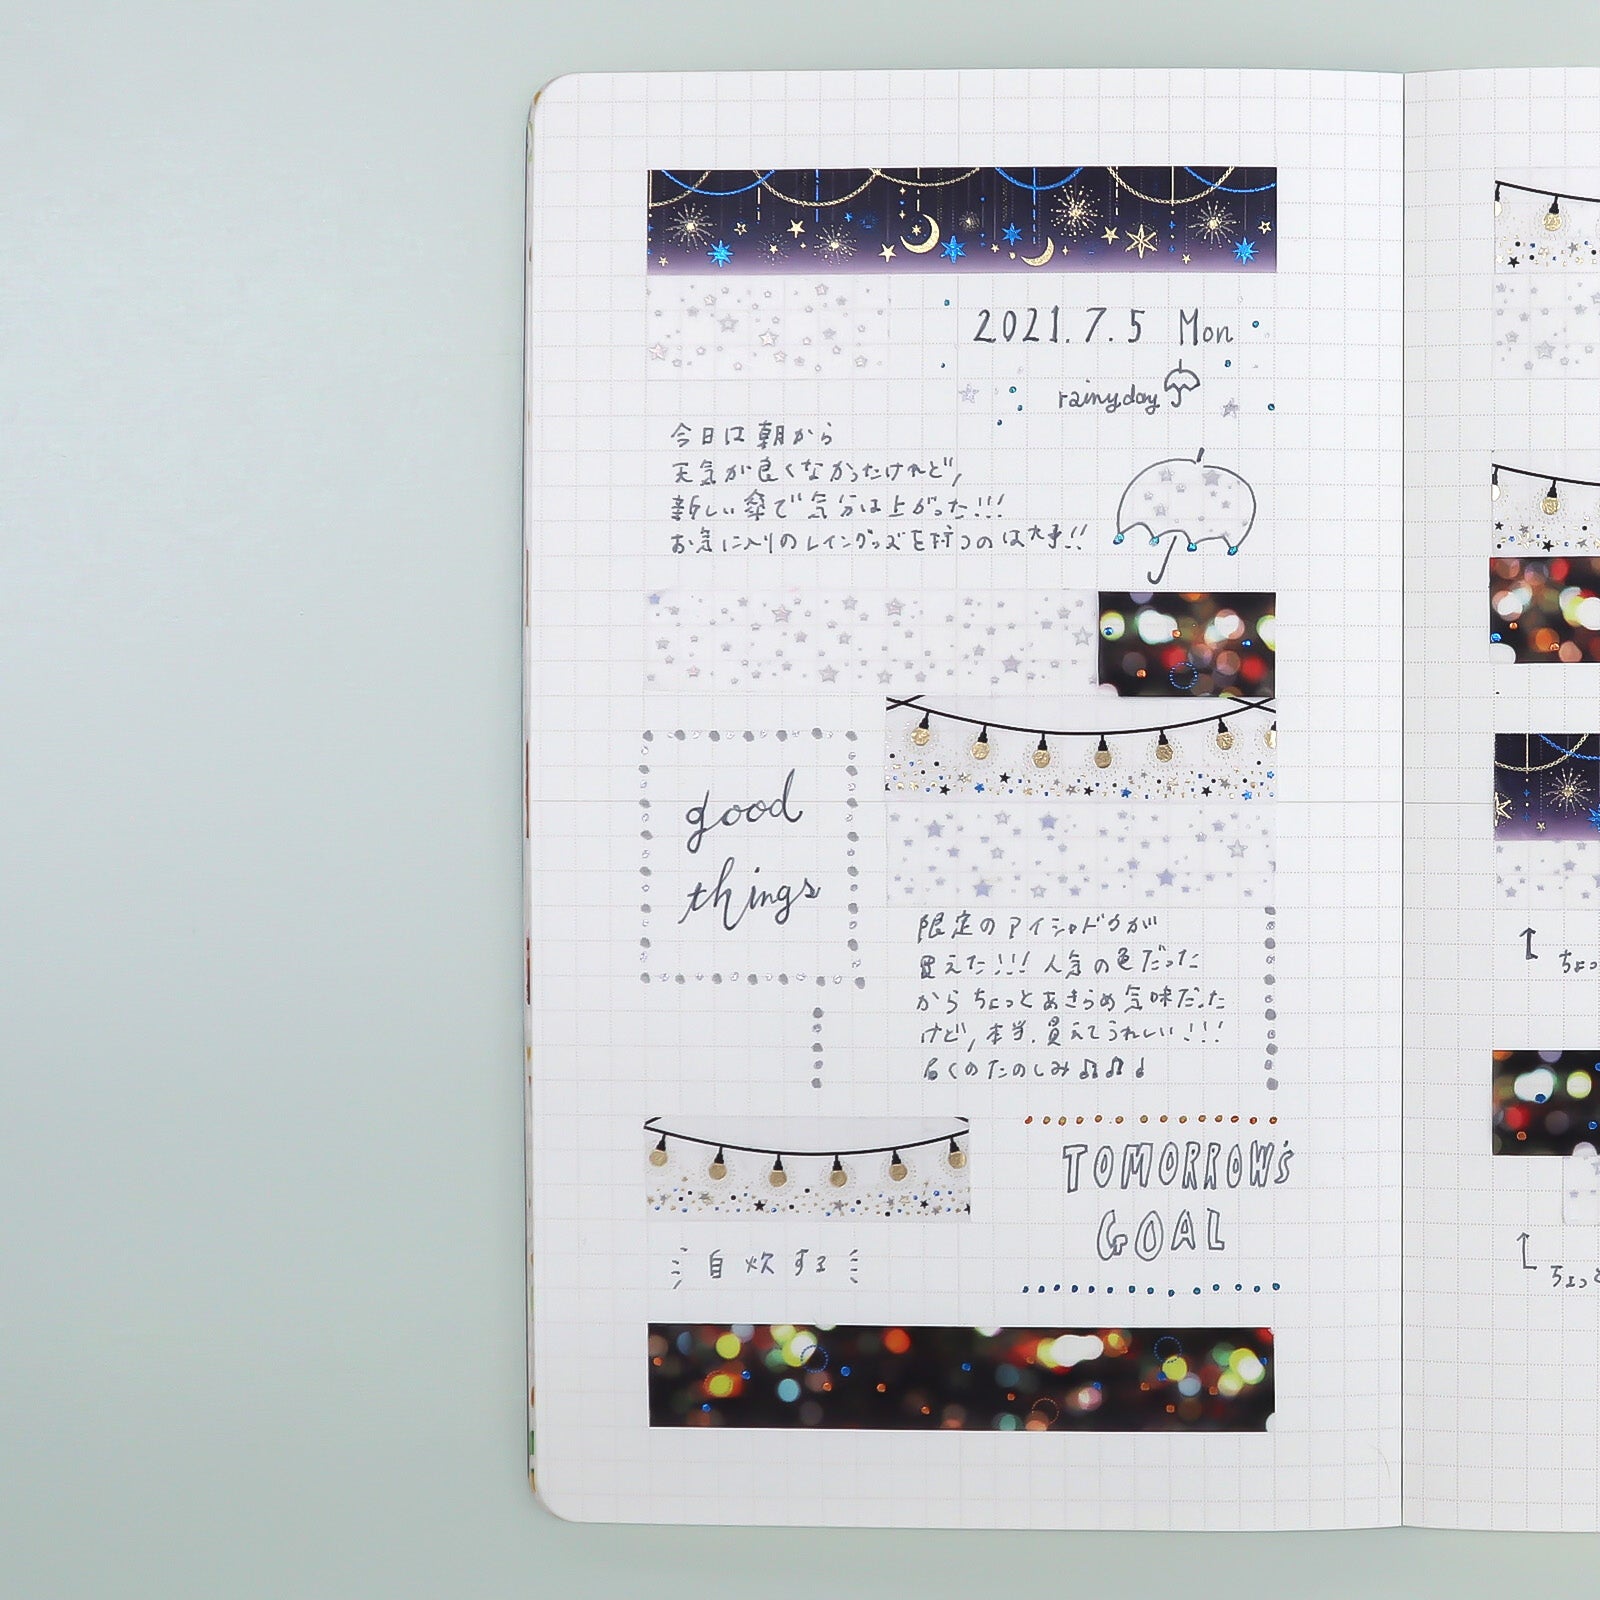 2021.7.5 Mon
rainy day
今日は朝から
天気が良くなかったけれど,
新しい傘で気分は上がった!!!
お気に入りのレイングッズを持つのは大事!!
good
things
限定のアイシャドウが
買えた!!! 人気の色だった
からちょっとあきらめ気味だった
けど, 本当, 買えてうれしい!!!
届くのたのしみ♫♫♪
TOMORROW's
GOAL
自炊する
↑
ちょっ
ちょっと